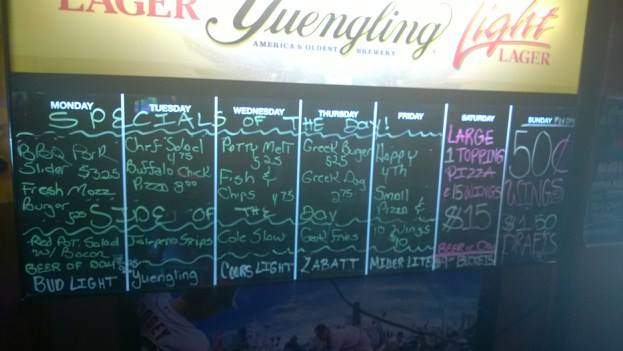 LAGER Yuengling Light
AMERICA'S OLDEST BREWERY LAGER
MONDAY TUESDAY WEDNESDAY THURSDAY FRIDAY SATURDAY SUNDAY
SPECIALS OF THE DAY!
BBQ Pork
Slider $3.25
Fresh Mozz
Burger
Chef Salad
4.75
Buffalo Chick
Pizza
Patty Melt
5.25
Fish &
Chips 4.75
Greek Burger
Greek Dog
2.75
Happy
4th
Small
Pizza &
10 Wings
LARGE
1 TOPPING
PIZZA
& 15 WINGS
$15
50¢
WINGS
$1.50
DRAFTS
SIDE OF THE DAY
Red Pot. Salad
w/ Bacon
Jalapeno Strips
Cole Slaw
Fries
BEER OF DAY
BUD LIGHT
Yuengling
COORS LIGHT
ZABATT
MILLER LITE
BEER OF DAY
BUCKETS